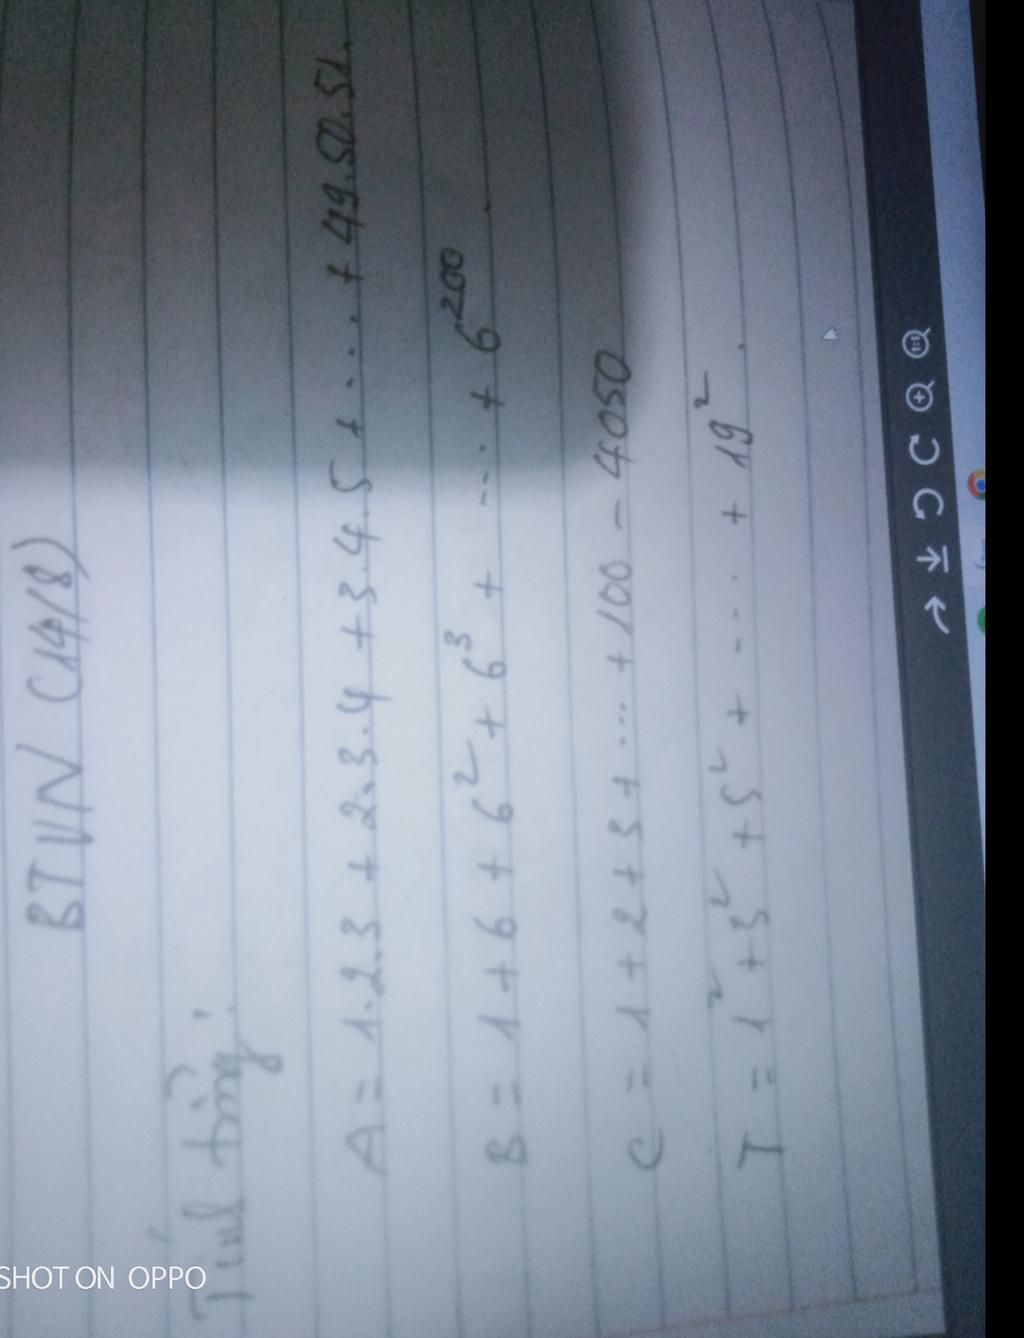 BTVN (14/8)
Tính tổng:
A = 1.2.3 + 2.3.4 + 3.4.5 + .... + 49.50.51.
B = 1 + 6 + 6² + 6³ + .... + 6²⁰⁰
C = 1 + 2 + 3 + .... + 100 - 4050
T = 1² + 3² + 5² + .... + 19².
SHOT ON OPPO